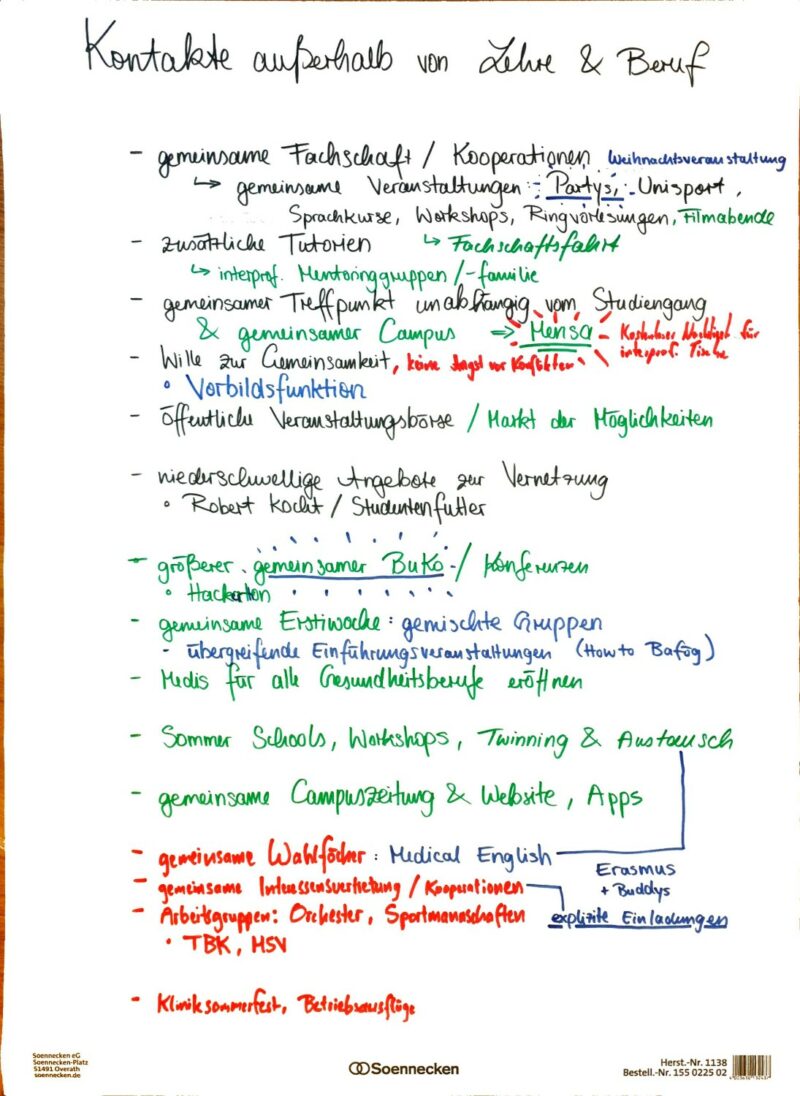 Kontakte außerhalb von Lehre & Beruf
- gemeinsame Fachschaft / Kooperationen Weihnachtsveranstaltung
↳ gemeinsame Veranstaltungen: Partys, Unisport,
Sprachkurse, Workshops, Ringvorlesungen, Filmabende
- zusätzliche Tutorien ↳ Fachschaftsfahrt
↳ interprof. Mentoringgruppen/-familie
- gemeinsamer Treffpunkt unabhängig vom Studiengang
& gemeinsamer Campus => Mensa Kostenloser Nachtisch für
interprof. Tische
- Wille zur Gemeinsamkeit, keine Angst vor Konflikten
• Vorbildsfunktion
- öffentliche Veranstaltungsbörse / Markt der Möglichkeiten
- niederschwellige Angebote zur Vernetzung
• Robert Kocht / Studentenfutter
- größerer gemeinsamer BuKo / Konferenzen
• Hackerton
- gemeinsame Erstiwoche: gemischte Gruppen
- übergreifende Einführungsveranstaltungen (How to Bafög)
- Medis für alle Gesundheitsberufe eröffnen
- Sommer Schools, Workshops, Twinning & Austausch
- gemeinsame Campuszeitung & Website, Apps
- gemeinsame Wahlfächer: Medical English
Erasmus
+ Buddys
- gemeinsame Interessensvertretung / Kooperationen
- Arbeitsgruppen: Orchester, Sportmannschaften explizite Einladungen
• TBK, HSV
- Kliniksommerfest, Betriebsausflüge
Soennecken eG
Soennecken-Platz
51491 Overath
soennecken.de
Soennecken
Herst.-Nr. 1138
Bestell.-Nr. 155 0225 02